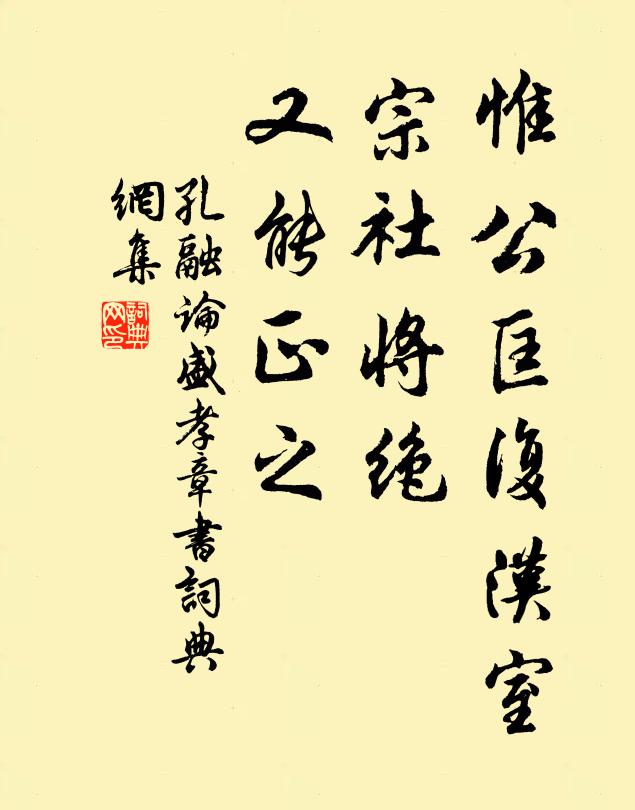 惟公匡復漢室
宗社將絶
又能正之
孔融論盛孝章書詞典
網集
詞典
网印